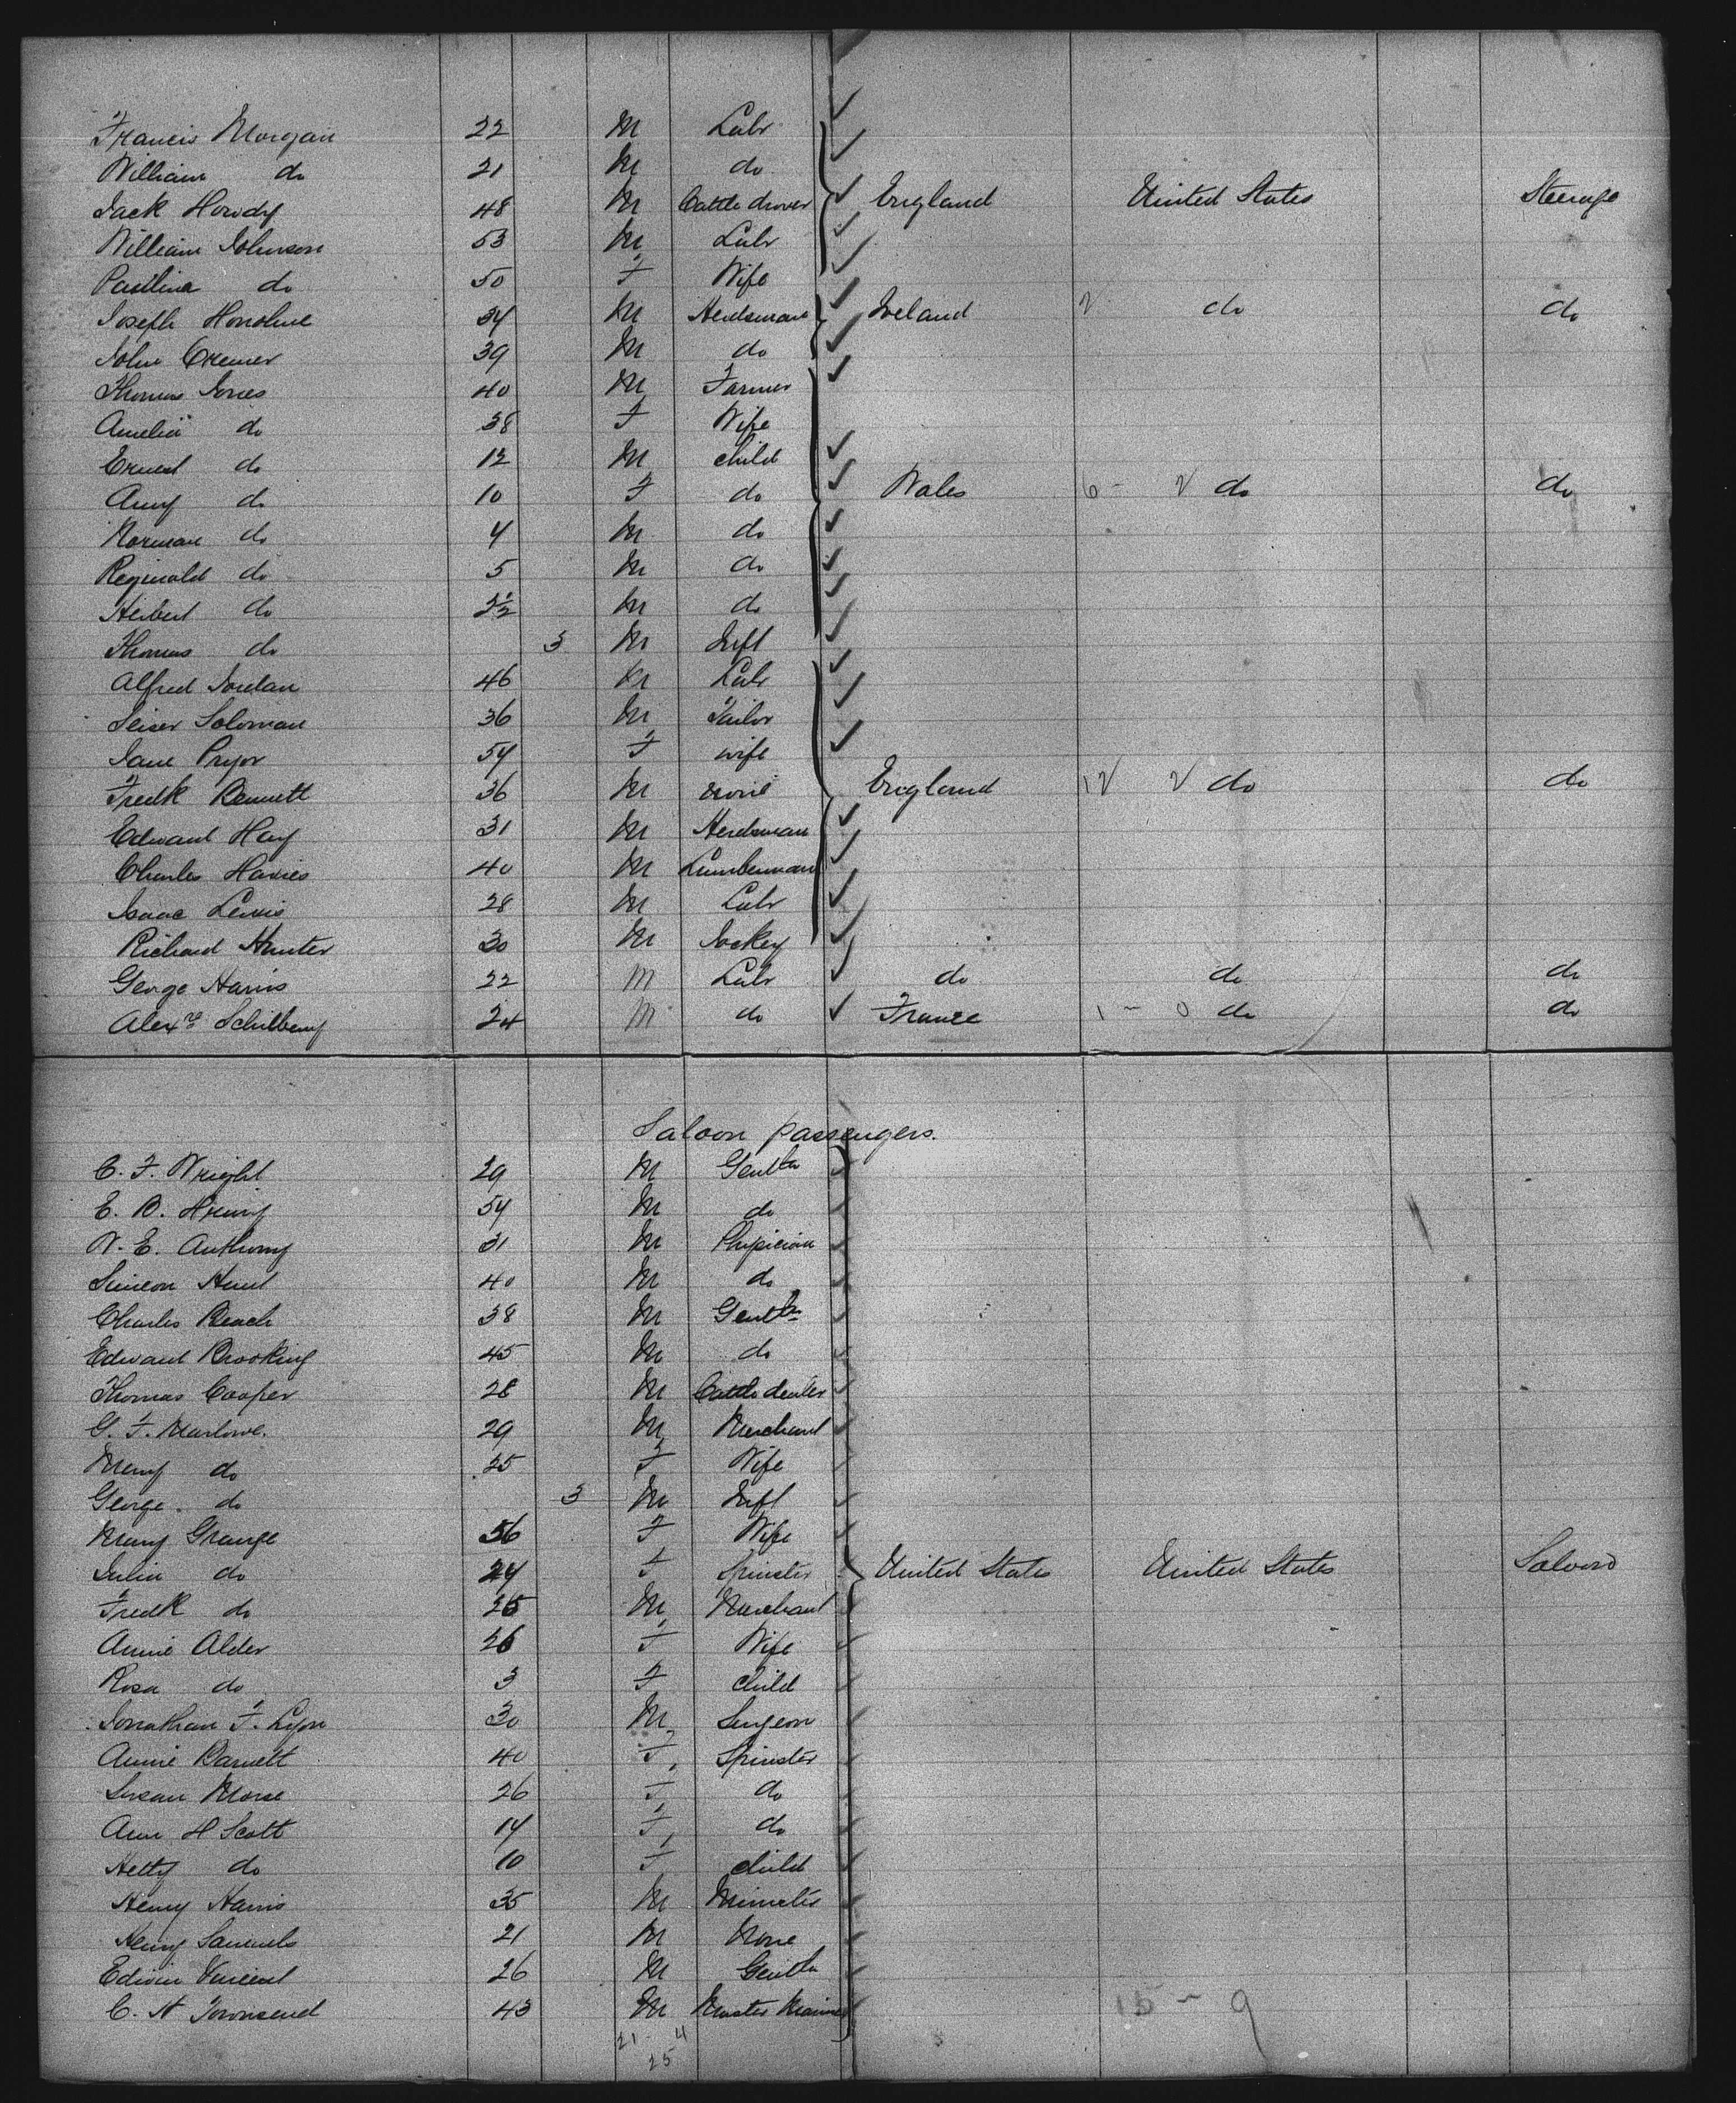 Francis Morgan 22 M Labr
William do 21 M do
Jack Howdy 48 M Cattle drover England United States Steerage
William Johnson 53 M Labr
Paulina do 50 F Wife
Joseph 34 M Herdsman Ireland 2 do do
John Cremer 39 M do
Thomas Jones 40 M Farmer
Amelia do 38 F Wife
Ernest do 12 M child
Amy do 10 F do Wales 6 - 2 do do
Norman do 4 M do
Reginald do 5 M do
Herbert do 2½ M do
Thomas do 3 M Inft
Alfred Jordan 46 M Labr
Soloman 36 M Tailor
Jane Pryor 54 F wife
Fredk Bennett 36 M England 12 2 do do
Edward Hay 31 M Herdsman
Charles Davies 40 M Lumberman
Isaac Lewis 28 M Labr
Richard Hunter 30 M Jockey
George Harris 22 M Labr do do do
Alexr 24 M do France 1 - 0 do do
Saloon passengers.
C. F. Wright 29 M Gentln
E. B. 54 M do
W. E. Anthony 31 M Physician
Simeon Hunt 40 M do
Charles Beach 38 M Gentln
Edward Brooking 45 M do
Thomas Cooper 28 M Cattle dealer
G. F. Marlowe. 29 M Merchant
Mary do 25 F Wife
George. do 3 M Inft
Mary Grange 56 F Wife
Julia do 24 F Spinster United States United States Saloon
Fredk do 25 M Merchant
Annie Alder 26 F Wife
Rosa do 3 F child
Jonathan F. Lyon 30 M Surgeon
Annie Barnett 40 F Spinster
Susan Morse 26 F do
Ann H Scott 14 F do
Hetty do 10 F child
Henry Harris 35 M Minister
Henry Samuels 21 M None
Edwin Vincent 26 M Gentln
C. H Townsend 43 M Master Mariner 15 - 9
21 - 4
25